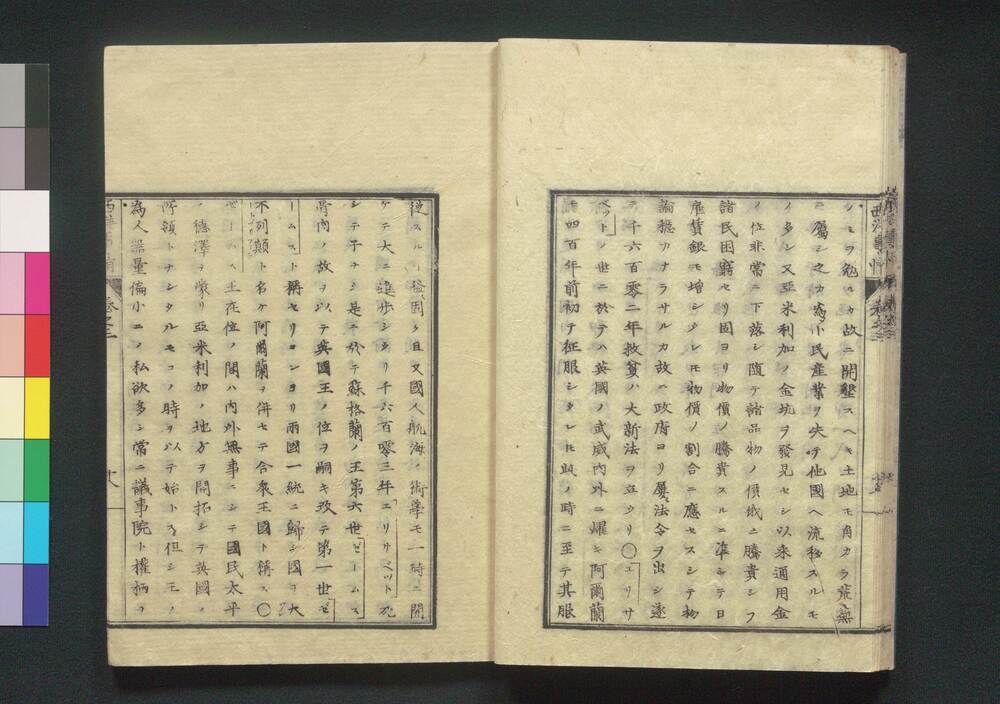 ノミヲ勉ルカ故ニ開墾スヘキ土地モ自カラ荒蕪
ニ屬シ之カ為小民産業ヲ失ヒ他國ヘ流移スルモ
ノ多シ又亞米利加ノ金坑ヲ發見セシ以来通用金
ノ位非常ニ下落シ随テ諸品物ノ價俄ニ騰貴シフ
諸民困窮セリ固ヨリ物價ノ騰貴スルニ準シテ日
雇賃銀モ増シタレモ物價ノ割合ニ應セスシテ物
論穏カナラサルカ故ニ政府ヨリ屡法令ヲ出シ遂
千六百零二年救貧ノ大新法ヲ立タリ〇エリサ
ベットノ世ニ於テハ英國ノ武威内外ニ耀キ阿爾蘭
四百年前初テ征服シタレモ此ノ時ニ至テ其服
從スル 益固ク且又國人航海ノ術學モ一時ニ開
ケテ大ニ進歩シタリ千六百零三年エリサベット死
シテ子ナシ是ニ於テ蘇格蘭ノ王第六世ゼームス
骨肉ノ故ヲ以テ英國王ノ位ヲ嗣キ改テ第一世ゼ
ームスト稱セリコレヨリ兩國一統ニ歸シ國ヲ大
不列顛ト名ケ阿爾蘭ヲ併セテ合衆王國ト稱ス〇
ゼームス王在位ノ間ハ内外無事ニシテ國民太平
ノ德澤ヲ蒙リ亞米利加ノ地方ヲ開拓シテ英國ノ
所領トナシタルモコノ時ヲ以テ始トス但シ王ノ
為人器量偏小ニノ私欲多シ常ニ議事院ト權柄ヲ
西洋事情 卷之三